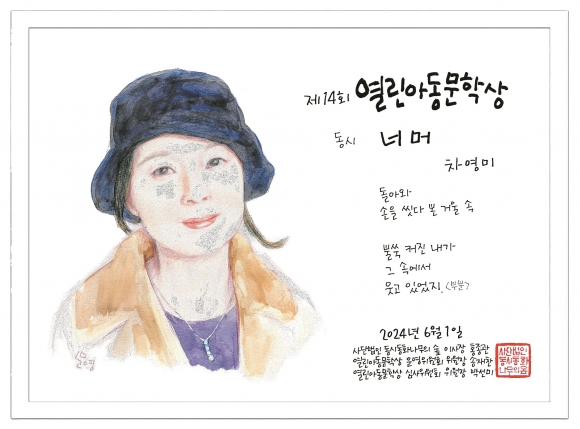 제14회 열린아동문학상
동시 너머
차영미
돌아와
손을 씻다 본 거울 속
불쑥 커진 내가
그 속에서
웃고 있었지. <부분>
2024년 6월 1일
사단법인 동시동화나무의 숲 이사장 홍종관
열린아동문학상 운영위원회 위원장 송재찬
열린아동문학상 심사위원회 위원장 박선미
사단법인
동시동화
나무의숲